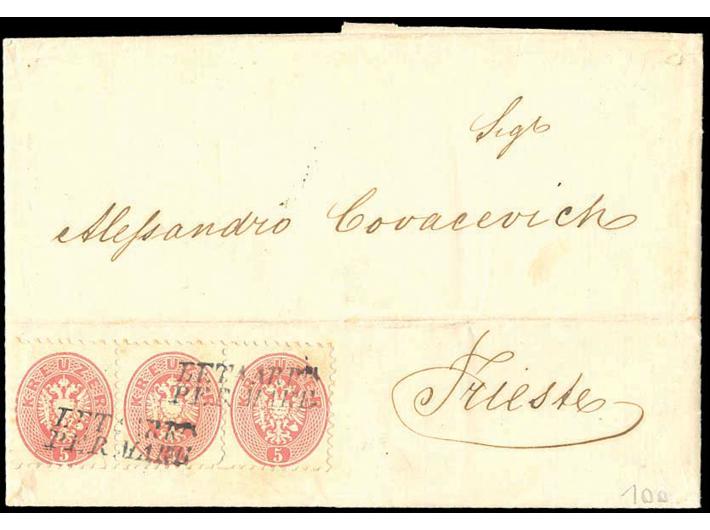 Sigr
Alessandro Covacevich
Trieste
KREUZER KREUZER KREUZER
LETT ARR
PER MARE
LETT ARR
PER MARE
5 5
100